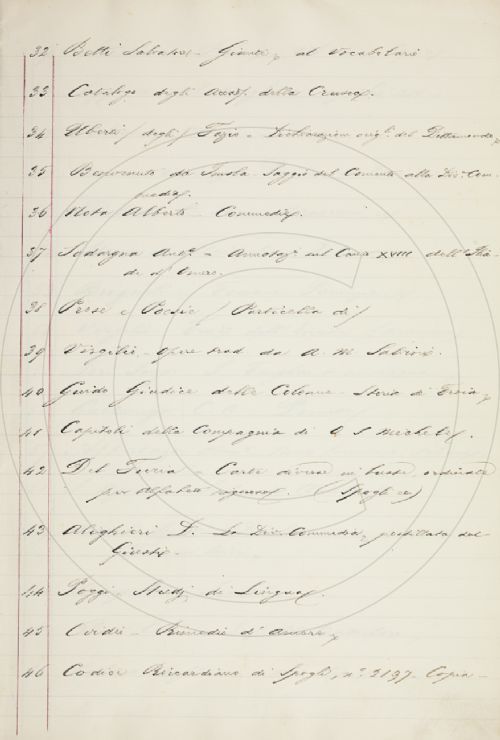 32 Betti Salvatore - Giunte al Vocabolario
33 Catalogo degli Accad. della Crusca.
34 Uberti (degli) Fazio - Dichiarazion orig. del Dittamondo
35 Benvenuto da Imola - Saggio del Comento alla Div. Com-
media.
36 Nota Alberto - Commedia.
37 And. - Annotaz. sul Canto XVIII dell' Ilia-
de d' Omero.
38 Prose e Poesie (Particella di)
39 Virgilio - Opere trad da A. M
40 Guido Giudice delle Colonne - Storia di Troia
41 Capitoli della Compagnia di O S Michele.
42 Del Furia - Carte diverse in buste, ordinate
per alfabeto. (Spogli ec)
43 Alighieri D. La Div. Commedia, postillata dal
Giusti.
44 Poggi - Studj di Lingua.
45 Ovidio - Rimedii d' Amore
46 Codice Riccardiano di Spogli, n.º 2197 - Copia -